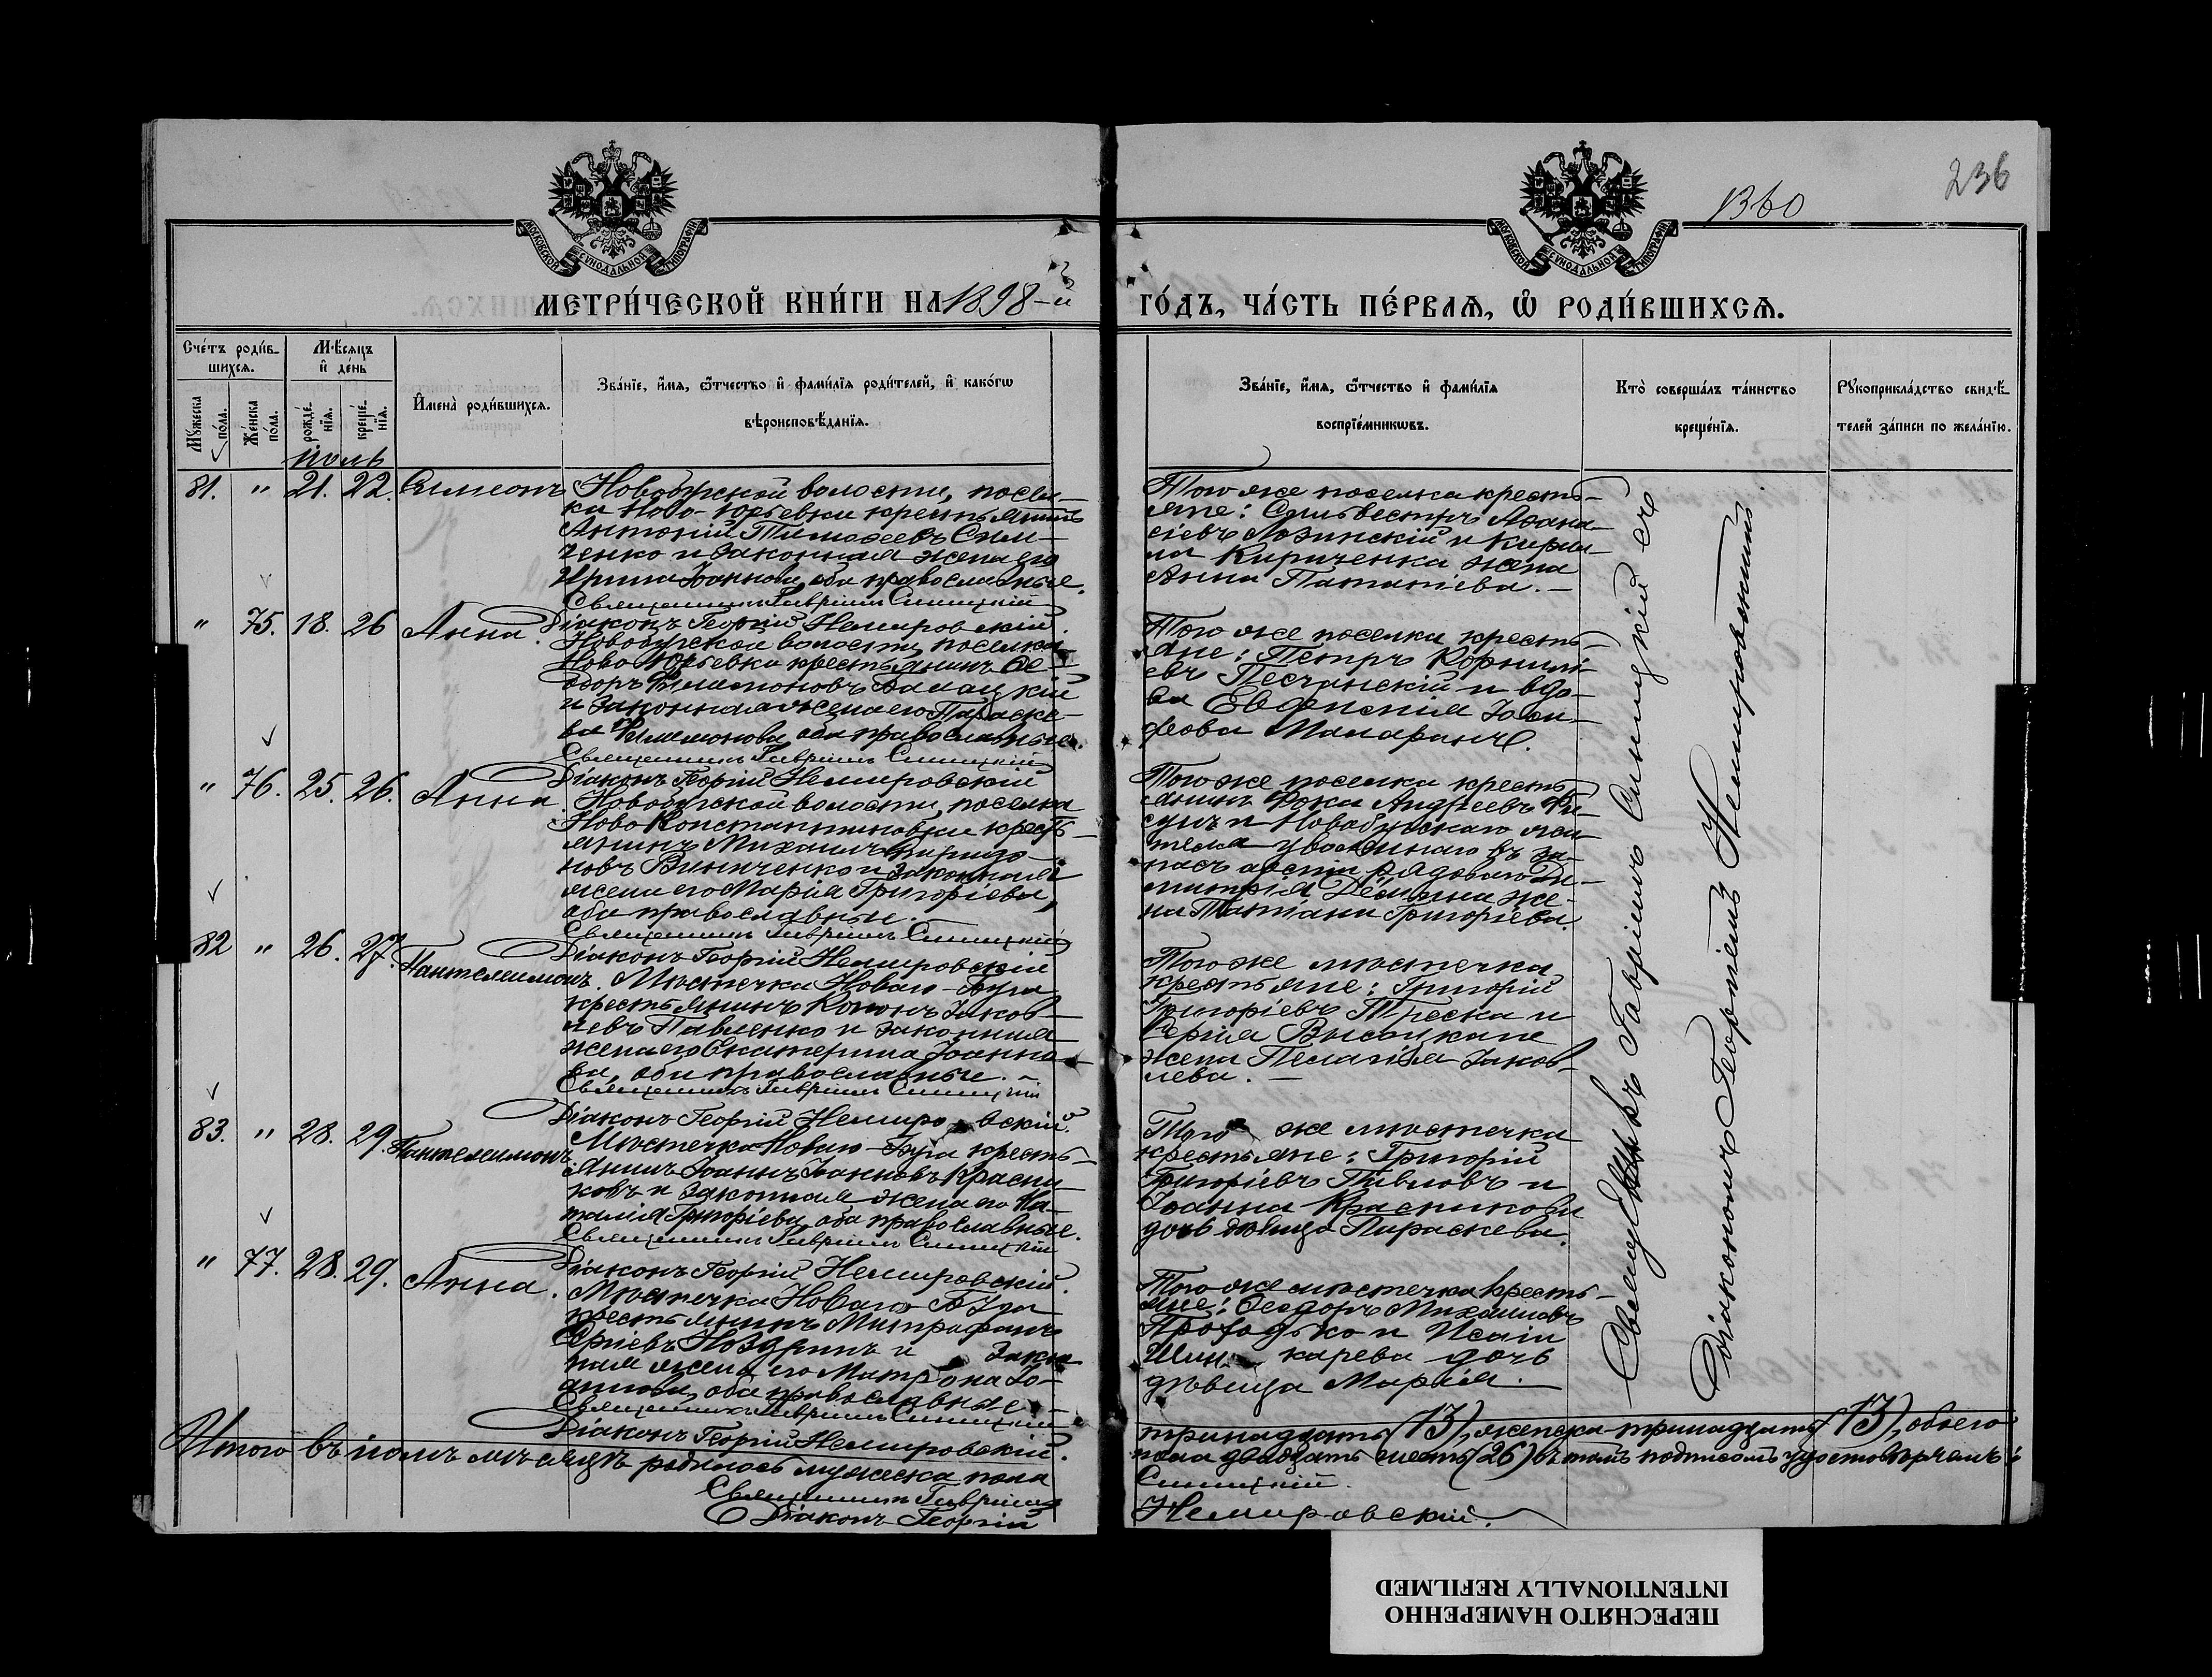 236
1360
МОСКОВСКОЙ СѴНОДАЛЬНОЙ ТИПОГРАФІИ
МОСКОВСКОЙ СѴНОДАЛЬНОЙ ТИПОГРАФІИ
МЕТРИ́ЧЕСКОЙ КНИ́ГИ НА 1898-й
ГО́ДЪ, ЧА́СТЬ ПЕ́РВАѦ, Ѡ҆ РОДИ́ВШИХСѦ.
Сче́тъ роди́в-
шихсѧ.
Мꙋжеска по́ла.
Же́нска по́ла.
Мѣ́сѧцъ
и҆ де́нь
рожде́нїѧ.
креще́нїѧ.
И҆мена̀ роди́вшихсѧ.
Зва́нїе, и҆́мѧ, ѻ҆́тчество и҆ фамі́лїѧ роди́телей, и҆ како́гѡ
вѣроисповѣ́данїѧ.
Зва́нїе, и҆́мѧ, ѻ҆́тчество и҆ фамі́лїѧ
воспрїе́мникѡвъ.
Кто̀ соверша́лъ та́инство
креще́нїѧ.
Рꙋкоприкла́дство свидѣ́-
телей за́писи по жела́нїю.
Іюль
81. " 21. 22. Симеонъ
Новобугской волости, посел-
ка Ново-Юрьевки крестьянинъ
Антоній Тимофеевъ Сим-
ченко и законная жена его
Ирина Іоаннова, оба православные.
Священникъ Гавріилъ Синицкій
Діаконъ Георгій Немировскій.
Того же поселка кресть-
яне: Сильвестръ Афана-
сіевъ Лозинскій и Кирил-
ла Кириченка жена
Анна Игнатіева.
" 75. 18. 26 Анна.
Новобугской волости, поселка
Ново Юрьевка крестьянинъ Ѳе-
одоръ Филимоновъ
и законная жена его Параске-
ва Филимонова, оба православные.
Священникъ Гавріилъ Синицкій
Діаконъ Георгій Немировскій
Того же поселка кресть-
яне: Петръ Корнилі-
евъ Песчанскій и вдо-
ва Евдокія Іоси-
фова
" 76. 25. 26. Анна.
Новобугской волости, поселка
Ново Константиновки кресть-
янинъ Михаилъ Спиридо-
новъ Винниченко и законная
жена его Марія Григоріева,
оба православные.
Священникъ Гавріилъ Синицкій
Діаконъ Георгій Немировскій
Того же поселка кресть-
янинъ Фока Андреевъ
и Новобугскаго жи-
теля уволеннаго въ за-
пасъ арміи рядового Ди-
митрія Дёмина же-
на Татіана Григоріева.
82 " 26. 27. Пантелеимонъ.
Мѣстечка Новаго-Буга
крестьянинъ Кононъ Іаков-
левъ Павленко и законная
жена его Екатерина Іоанно-
ва, оба православные.
Священникъ Гавріилъ Синицкій
Діаконъ Георгій Немировскій.
Того же мѣстечка
крестьяне: Григорій
Григоріевъ Треска и
Сергія
жена Пелагія Іаков-
лева.
83. " 28. 29. Пантелеимонъ
Мѣстечка Новаго-Буга кресть-
янинъ Іоаннъ Іоанновъ Красни-
ковъ и законная жена его На-
талія Григоріева, оба православные.
Священникъ Гавріилъ Синицкій
Діаконъ Георгій Немировскій.
Того же мѣстечка
крестьяне: Григорій
Григоріевъ Павловъ и
Іоанна Красникова
дочь дѣвица Параскева.
" 77. 28. 29. Анна.
Мѣстечка Новаго Буга
крестьянинъ Митрофанъ
Сергіевъ Ноздринъ и закон-
ная жена его Матрона Іо-
аннова, оба православные.
Священникъ Гавріилъ Синицкій
Діаконъ Георгій Немировскій.
Того же мѣстечка кресть-
яне: Ѳеодоръ Михаиловъ
Проходько и Исаіи
дочь
дѣвица Марія.
Священникъ Гавріилъ Синицкій съ
діакономъ Георгіемъ Немировскимъ.
Итого въ іюлѣ мѣсяцѣ родилось мужеска пола
тринадцать (13), женска тринадцать (13), обоего
пола двадцать шесть (26) въ томъ подписомъ удостовѣряемъ:
Священникъ Гавріилъ Синицкій.
Діаконъ Георгій Немировскій.
ПЕРЕСНЯТО НАМЕРЕННО
INTENTIONALLY REFILMED